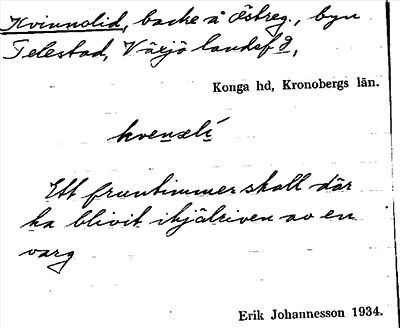 Kvinnolid, backe å östreg., byn
Telestad, Växjö landsf g,
Konga hd, Kronobergs län.
kvenəli
Ett fruntimmer skall där
ha blivit ihjälriven av en
varg
Erik Johannesson 1934.